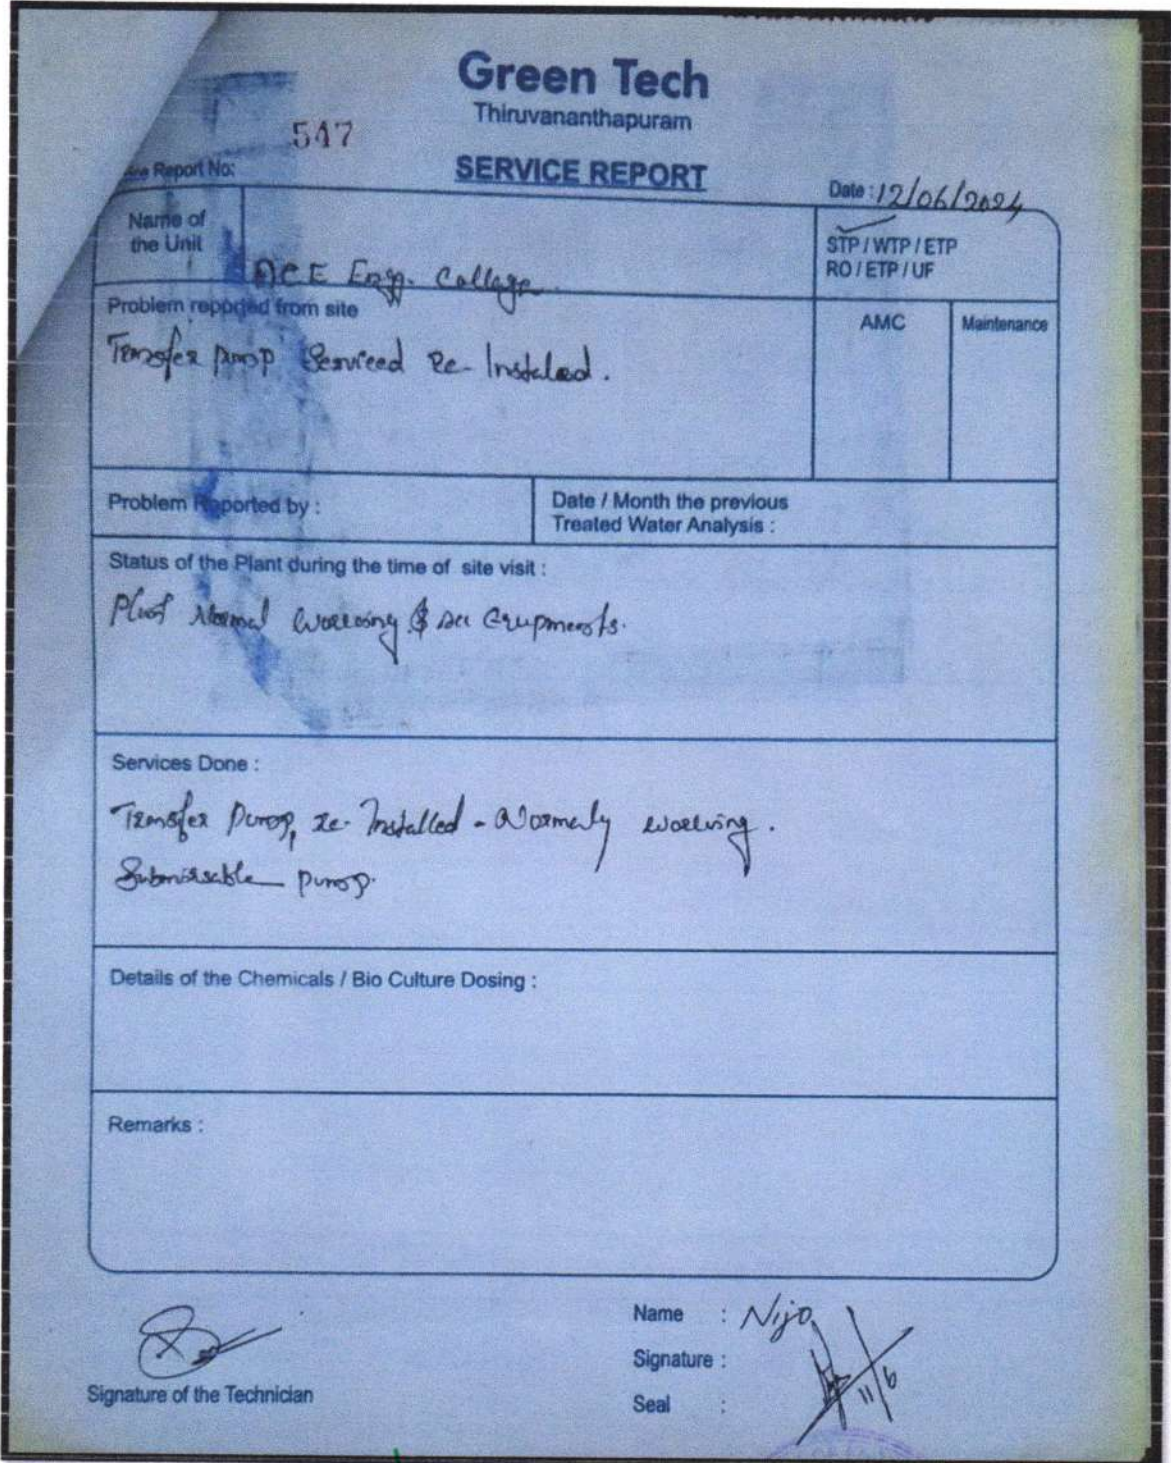 Green Tech
Thiruvananthapuram
547
Report No:
SERVICE REPORT
Date : 12/06/2024
Name of
the Unit
ACE Engg. College
STP / WTP / ETP
RO / ETP / UF
Problem reported from site
AMC
Maintenance
Transfer pump Serviced Re-Instaled.
Problem Reported by :
Date / Month the previous
Treated Water Analysis :
Status of the Plant during the time of site visit :
Plant Normal Working &
Services Done :
Transfer Pump, re-Installed - Normaly working.
Submissable pump.
Details of the Chemicals / Bio Culture Dosing :
Remarks :
Name : Nijo
Signature :
11/6
Signature of the Technician
Seal :